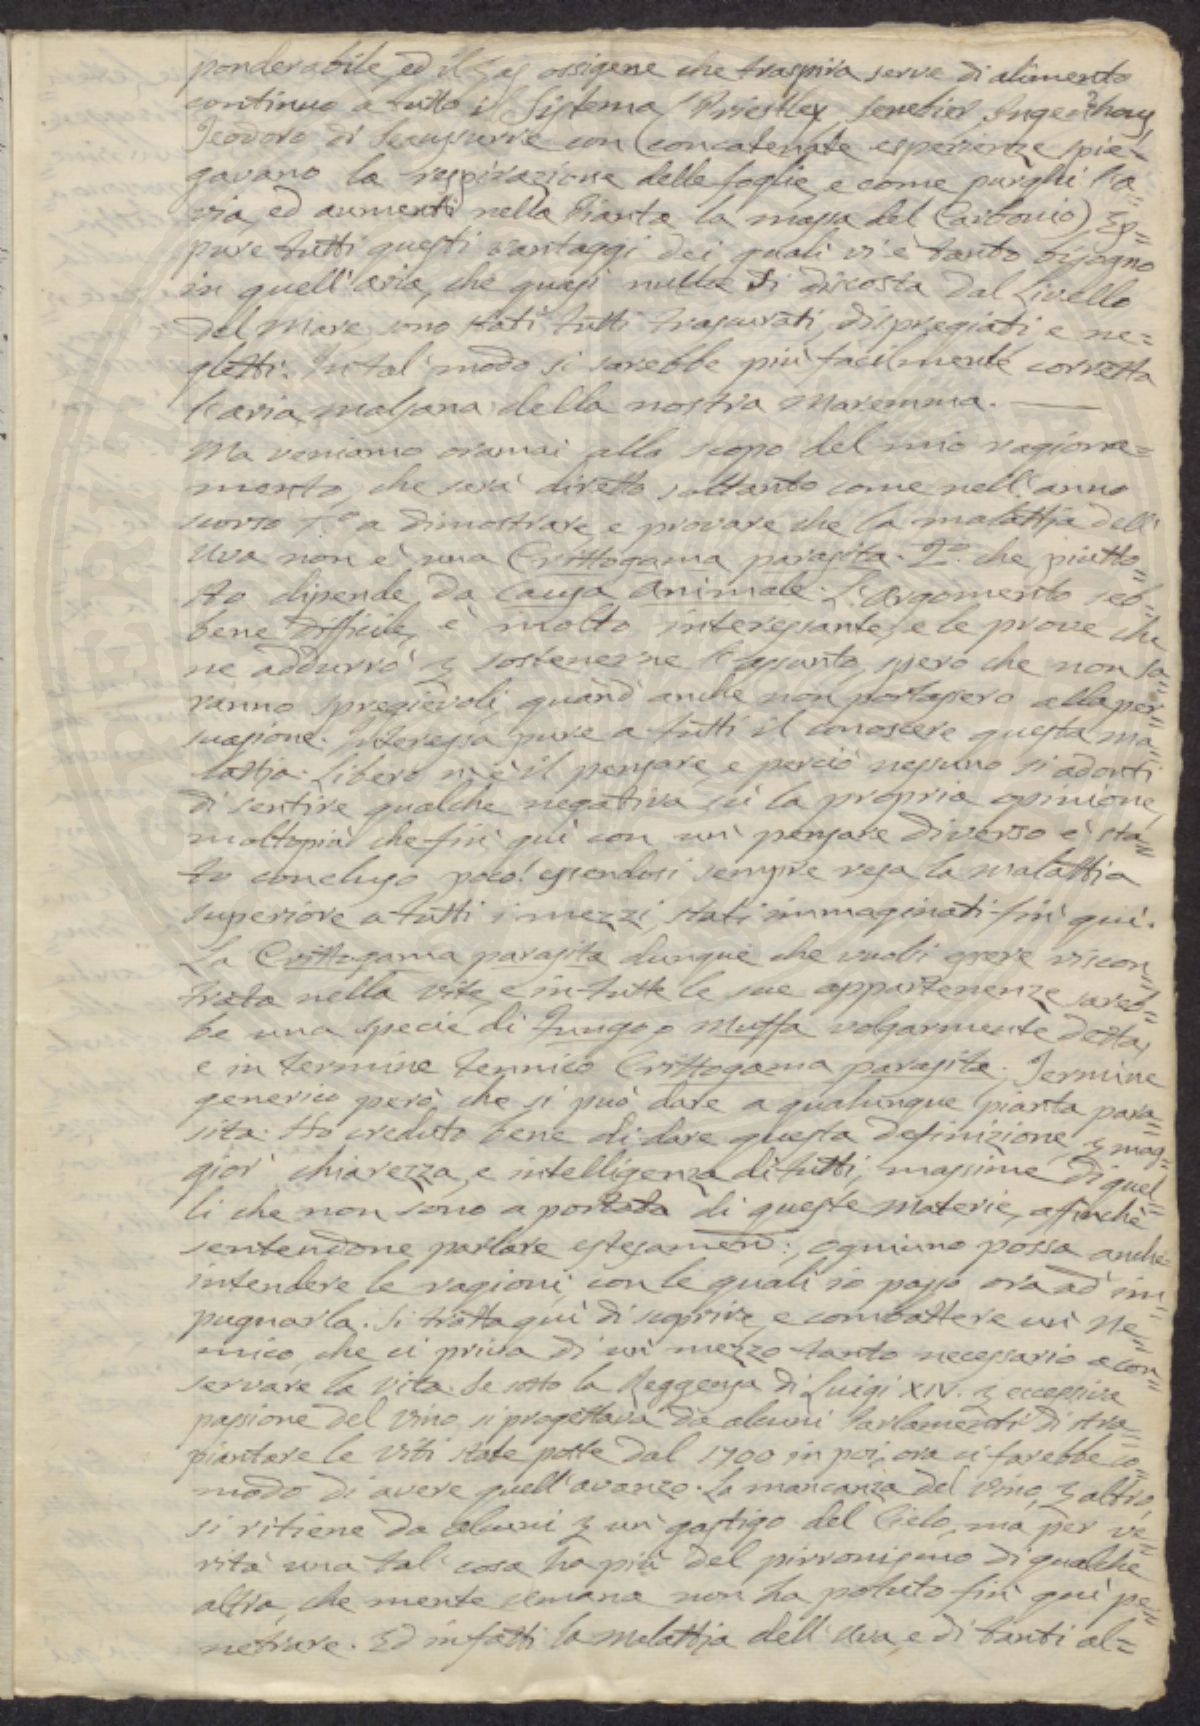 ponderabile, ed il Gas ossigene che traspira serve di alimento
continuo a tutto il Sistema (Priestley, Senebier, Ingenhouz
Teodoro di Saussurre con concatenate esperienze spie-
gavano la respirazione delle foglie, e come purghi l'a
ria, ed aumenti nella Pianta la massa del Carbonio) Ep=
pure tutti questi vantaggi dei quali vi è tanto bisogno
in quell'aria, che quasi nulla Si discosta dal Livello
del Mare sono stati tutti trascurati, dispregiati, e ne=
gletti. In tal' modo si sarebbe più facilmente corretta
l'aria malsana della nostra Maremma. —
Ma veniamo oramai allo scopo del mio ragiona=
mento, che sarà diretto soltanto come nell'anno
scorso 1.º a dimostrare, e provare che la malattia dell'
Uva non è una Crittogama parasita. 2º. che piutto=
sto dipende da causa animale. L'argomento seb=
bene difficile, è molto interessante, e le prove che
ne addurrò 3 sostenerne l'assunto, spero che non sa=
ranno spregievoli, quand' anche non portassero alla per=
suasione. Interessa pure a tutti il conoscere questa ma=
lattia. Libero n'è il pensare, e perciò nessuno si adonti
di sentire qualche negativa sù la propria opinione,
moltopiù che fin' quì con un' pensare diverso è sta=
to concluso poco! essendosi sempre resa la malattia
superiore a tutti i mezzi stati immaginati fin' quì.
La Crittogama parasita dunque che vuolsi essere riscon=
trata nella Vite, e in tutte le sue appartenenze sareb=
be una specie di Fungo, o Muffa volgarmente detta,
e in termine tennico Crittogama parasita. Termine
generico però che si può dare a qualunque pianta para=
sita. Ho creduto bene di dare questa definizione 3 mag=
gior' chiarezza, e intelligenza di tutti, massime di quel=
li che non sono a portata di queste Materie, affinchè
sentendone parlare estesamen: , ogniuno possa anche=
intendere le ragioni, con le quali io passo ora ad im=
pugnarla. Si tratta quì di scoprire, e combattere un' Ne=
mico, che ci priva di un' mezzo tanto necessario a con=
servare la Vita. Se sotto la Reggenza di Luigi XIV. 3 eccessiva
passione del Vino si progettava da alcuni Parlamenti di stra=
piantare le Viti state poste dal 1700 in poi, ora ci farebbe co=
modo di avere quell'avanzo. La mancanza del Vino, 3 altro,
si ritiene da alcuni 3 un' gastigo del Cielo, ma per ve=
rità una tal' cosa ha più del pirronismo di qualche
altra, che mente umana non ha potuto fin' quì pe=
netrare. Ed infatti la Malattia dell' Uva, e di tanti al=